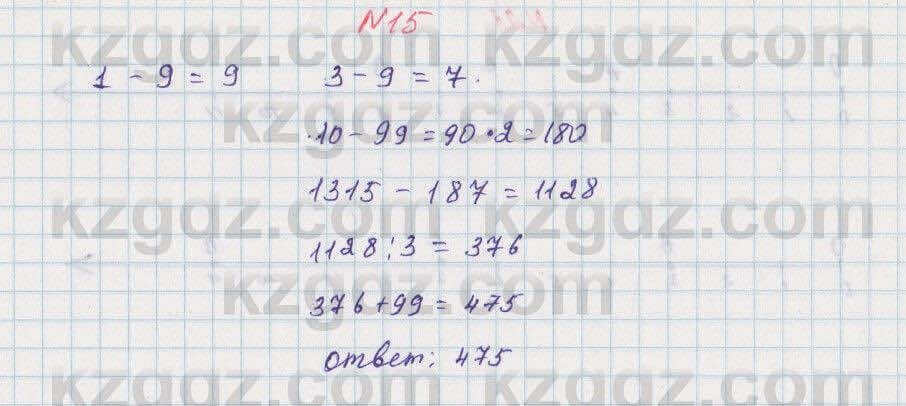 N15
1 - 9 = 9     3 - 9 = 7.
10 - 99 = 90 • 2 = 180
1315 - 187 = 1128
1128 : 3 = 376
376 + 99 = 475
ответ: 475
kzgdz.com kzgdz.com
kzgdz.com
kzgdz.com kzgdz.com
kzgdz.com
kzgdz.com kzgdz.com